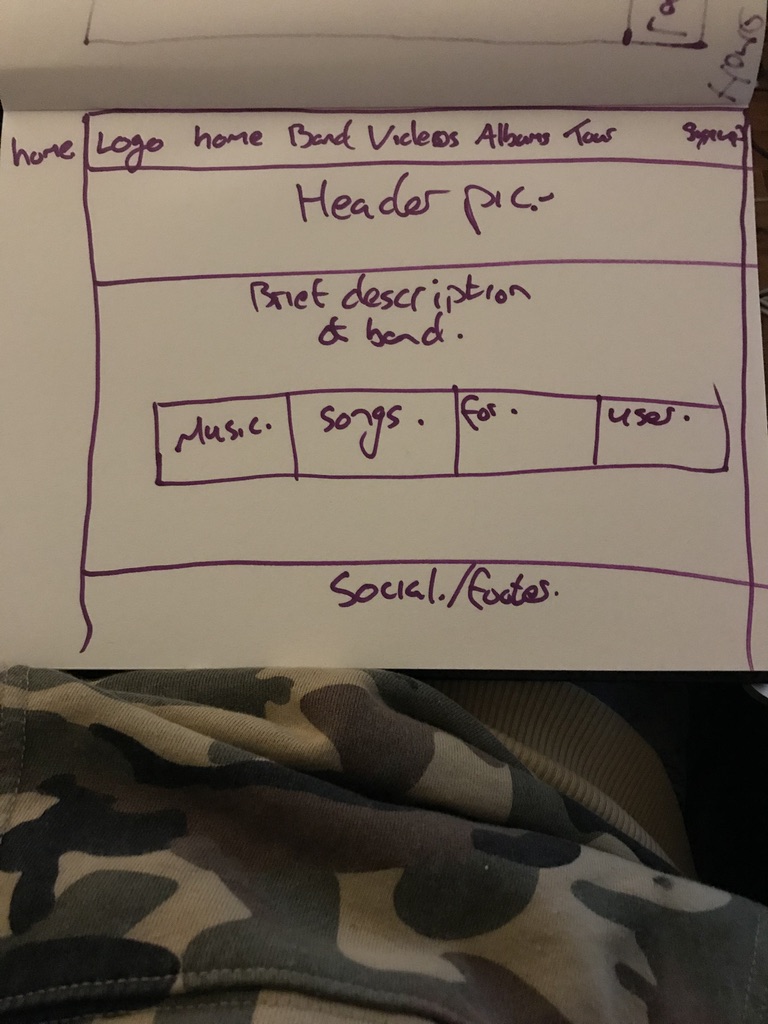 home
Logo home Band Videos Albums Tour Signup
Header pic.-
Brief description
of band.
Music. Songs. for. user.
Social./footer.